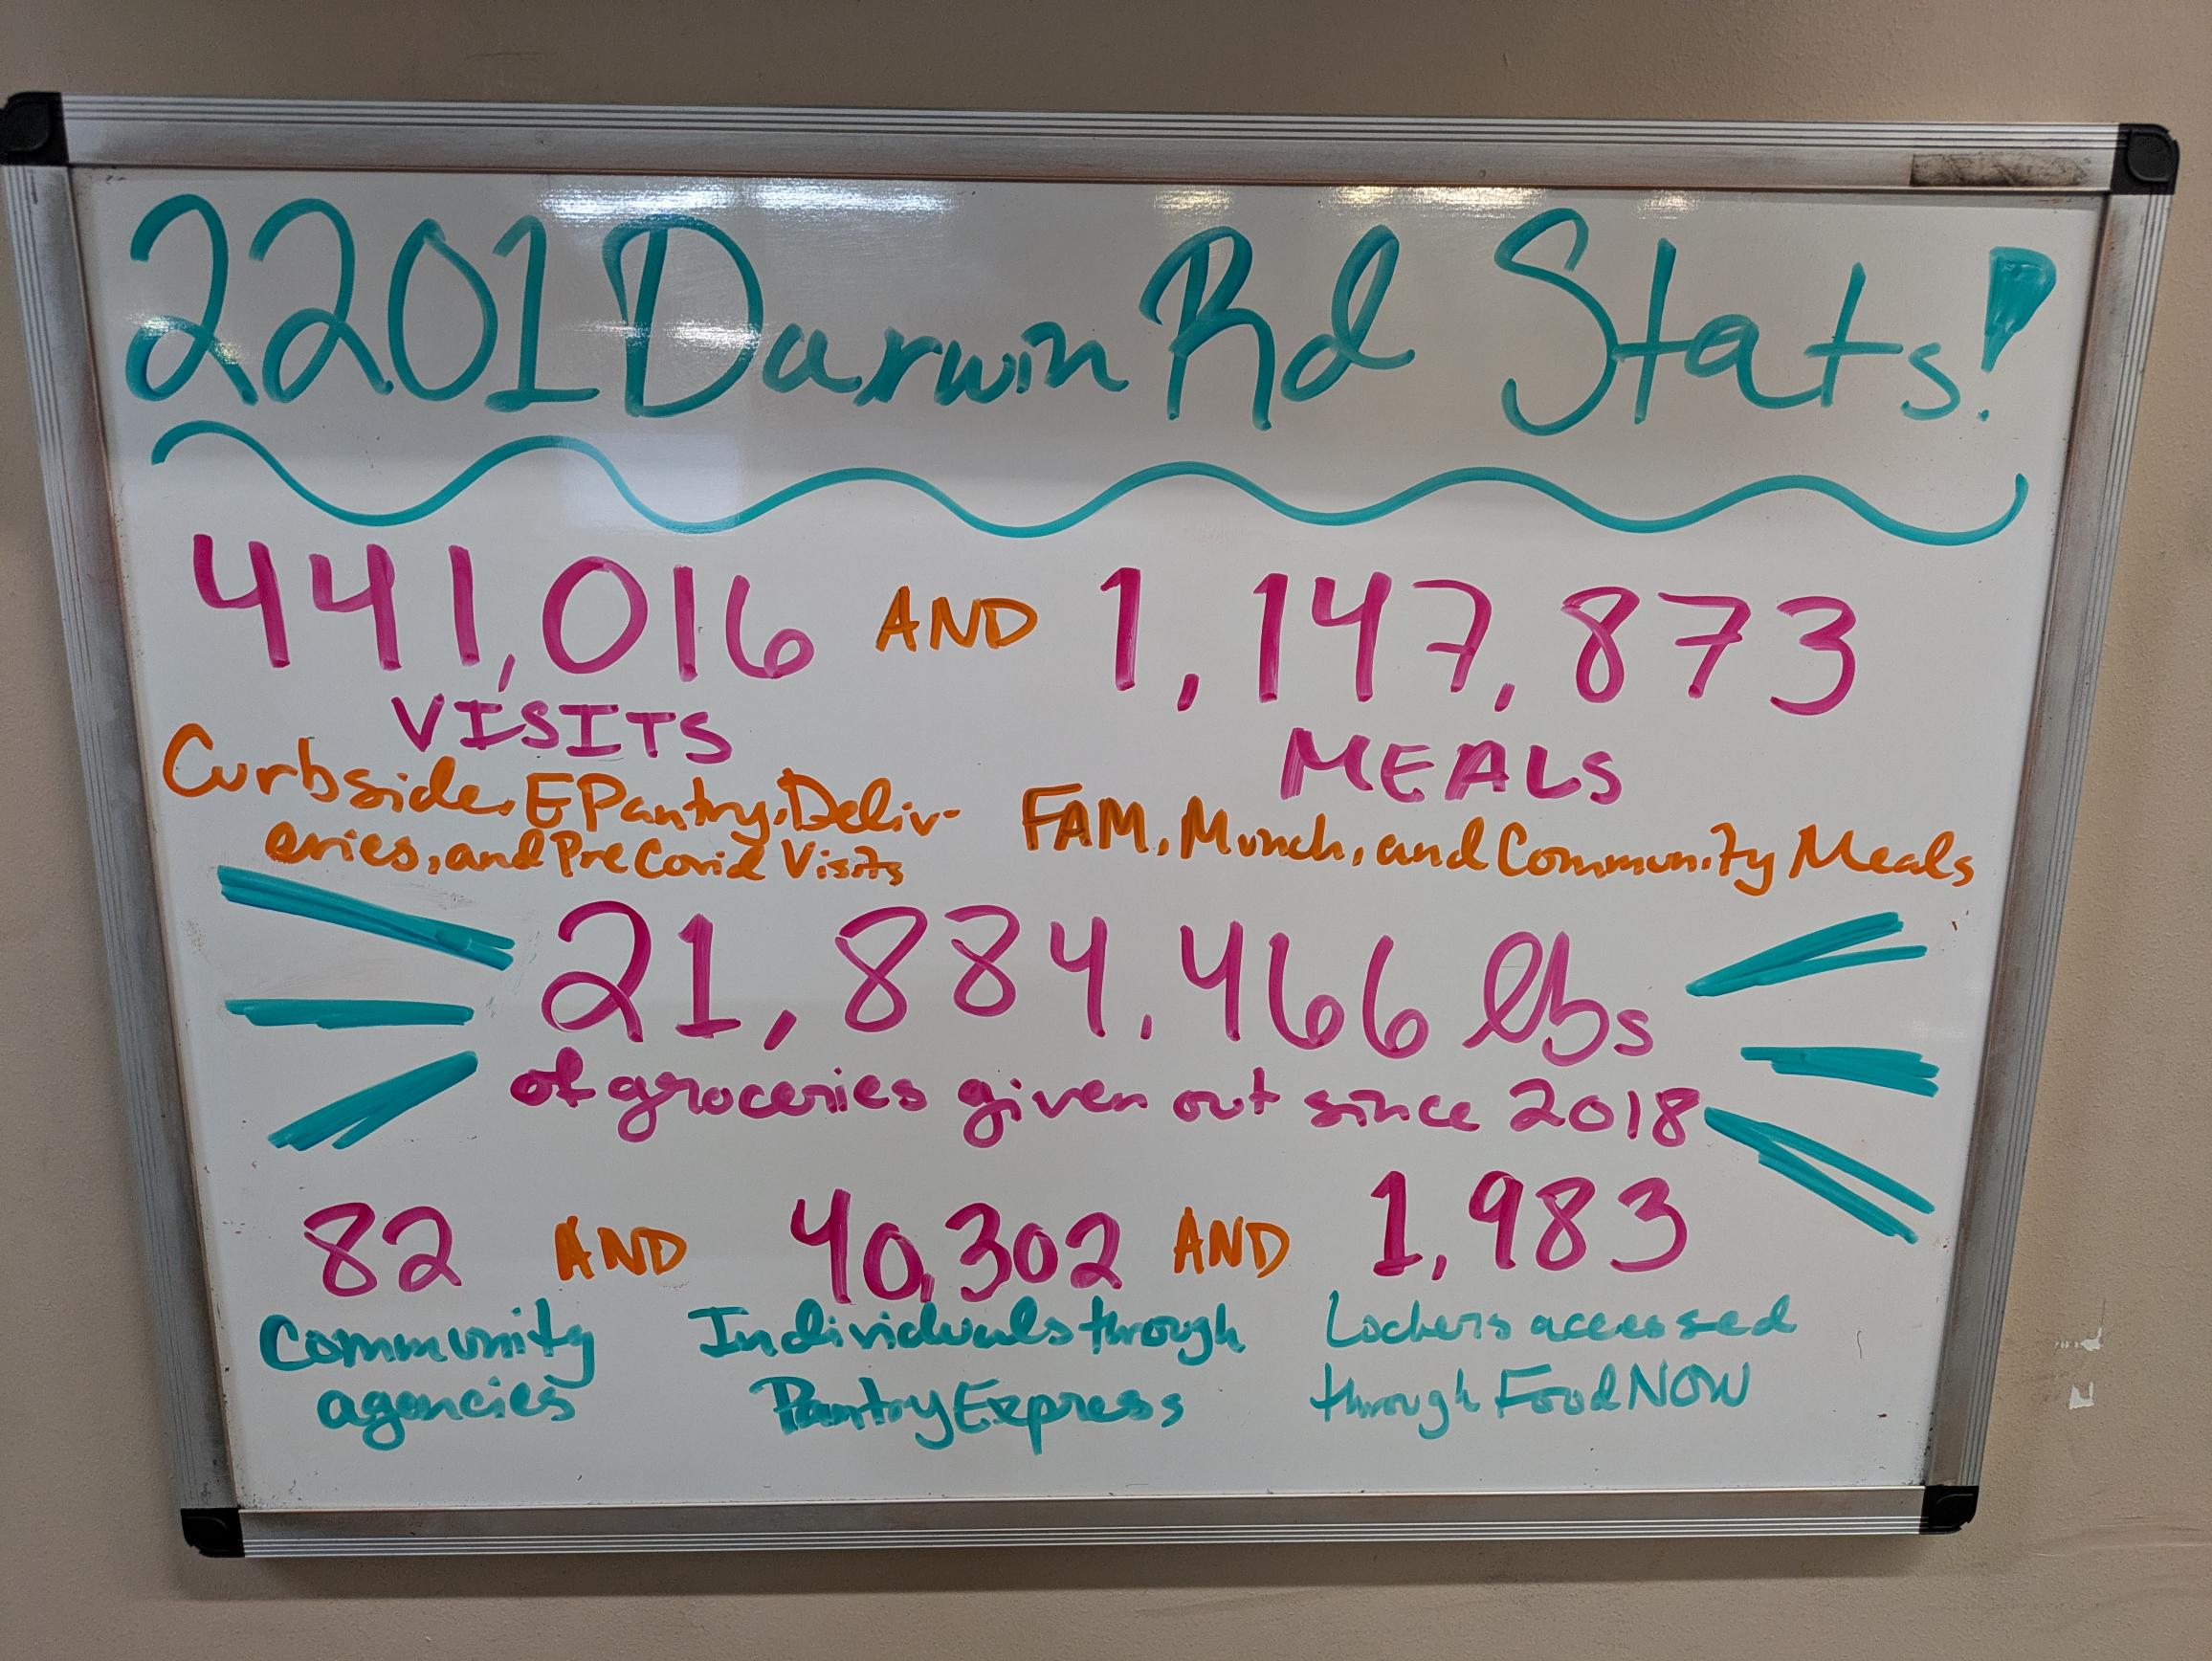 2201 Darwin Rd Stats!
441,016 AND 1,147,873
VISITS MEALS
Curbside, EPantry, Deliv-
eries, and PreCovid Visits
FAM, Munch, and Community Meals
21,884,466 lbs
of groceries given out since 2018
82 AND 40,302 AND 1,983
Community
agencies
Individuals through
Pantry Express
Lockers accessed
through FoodNOW